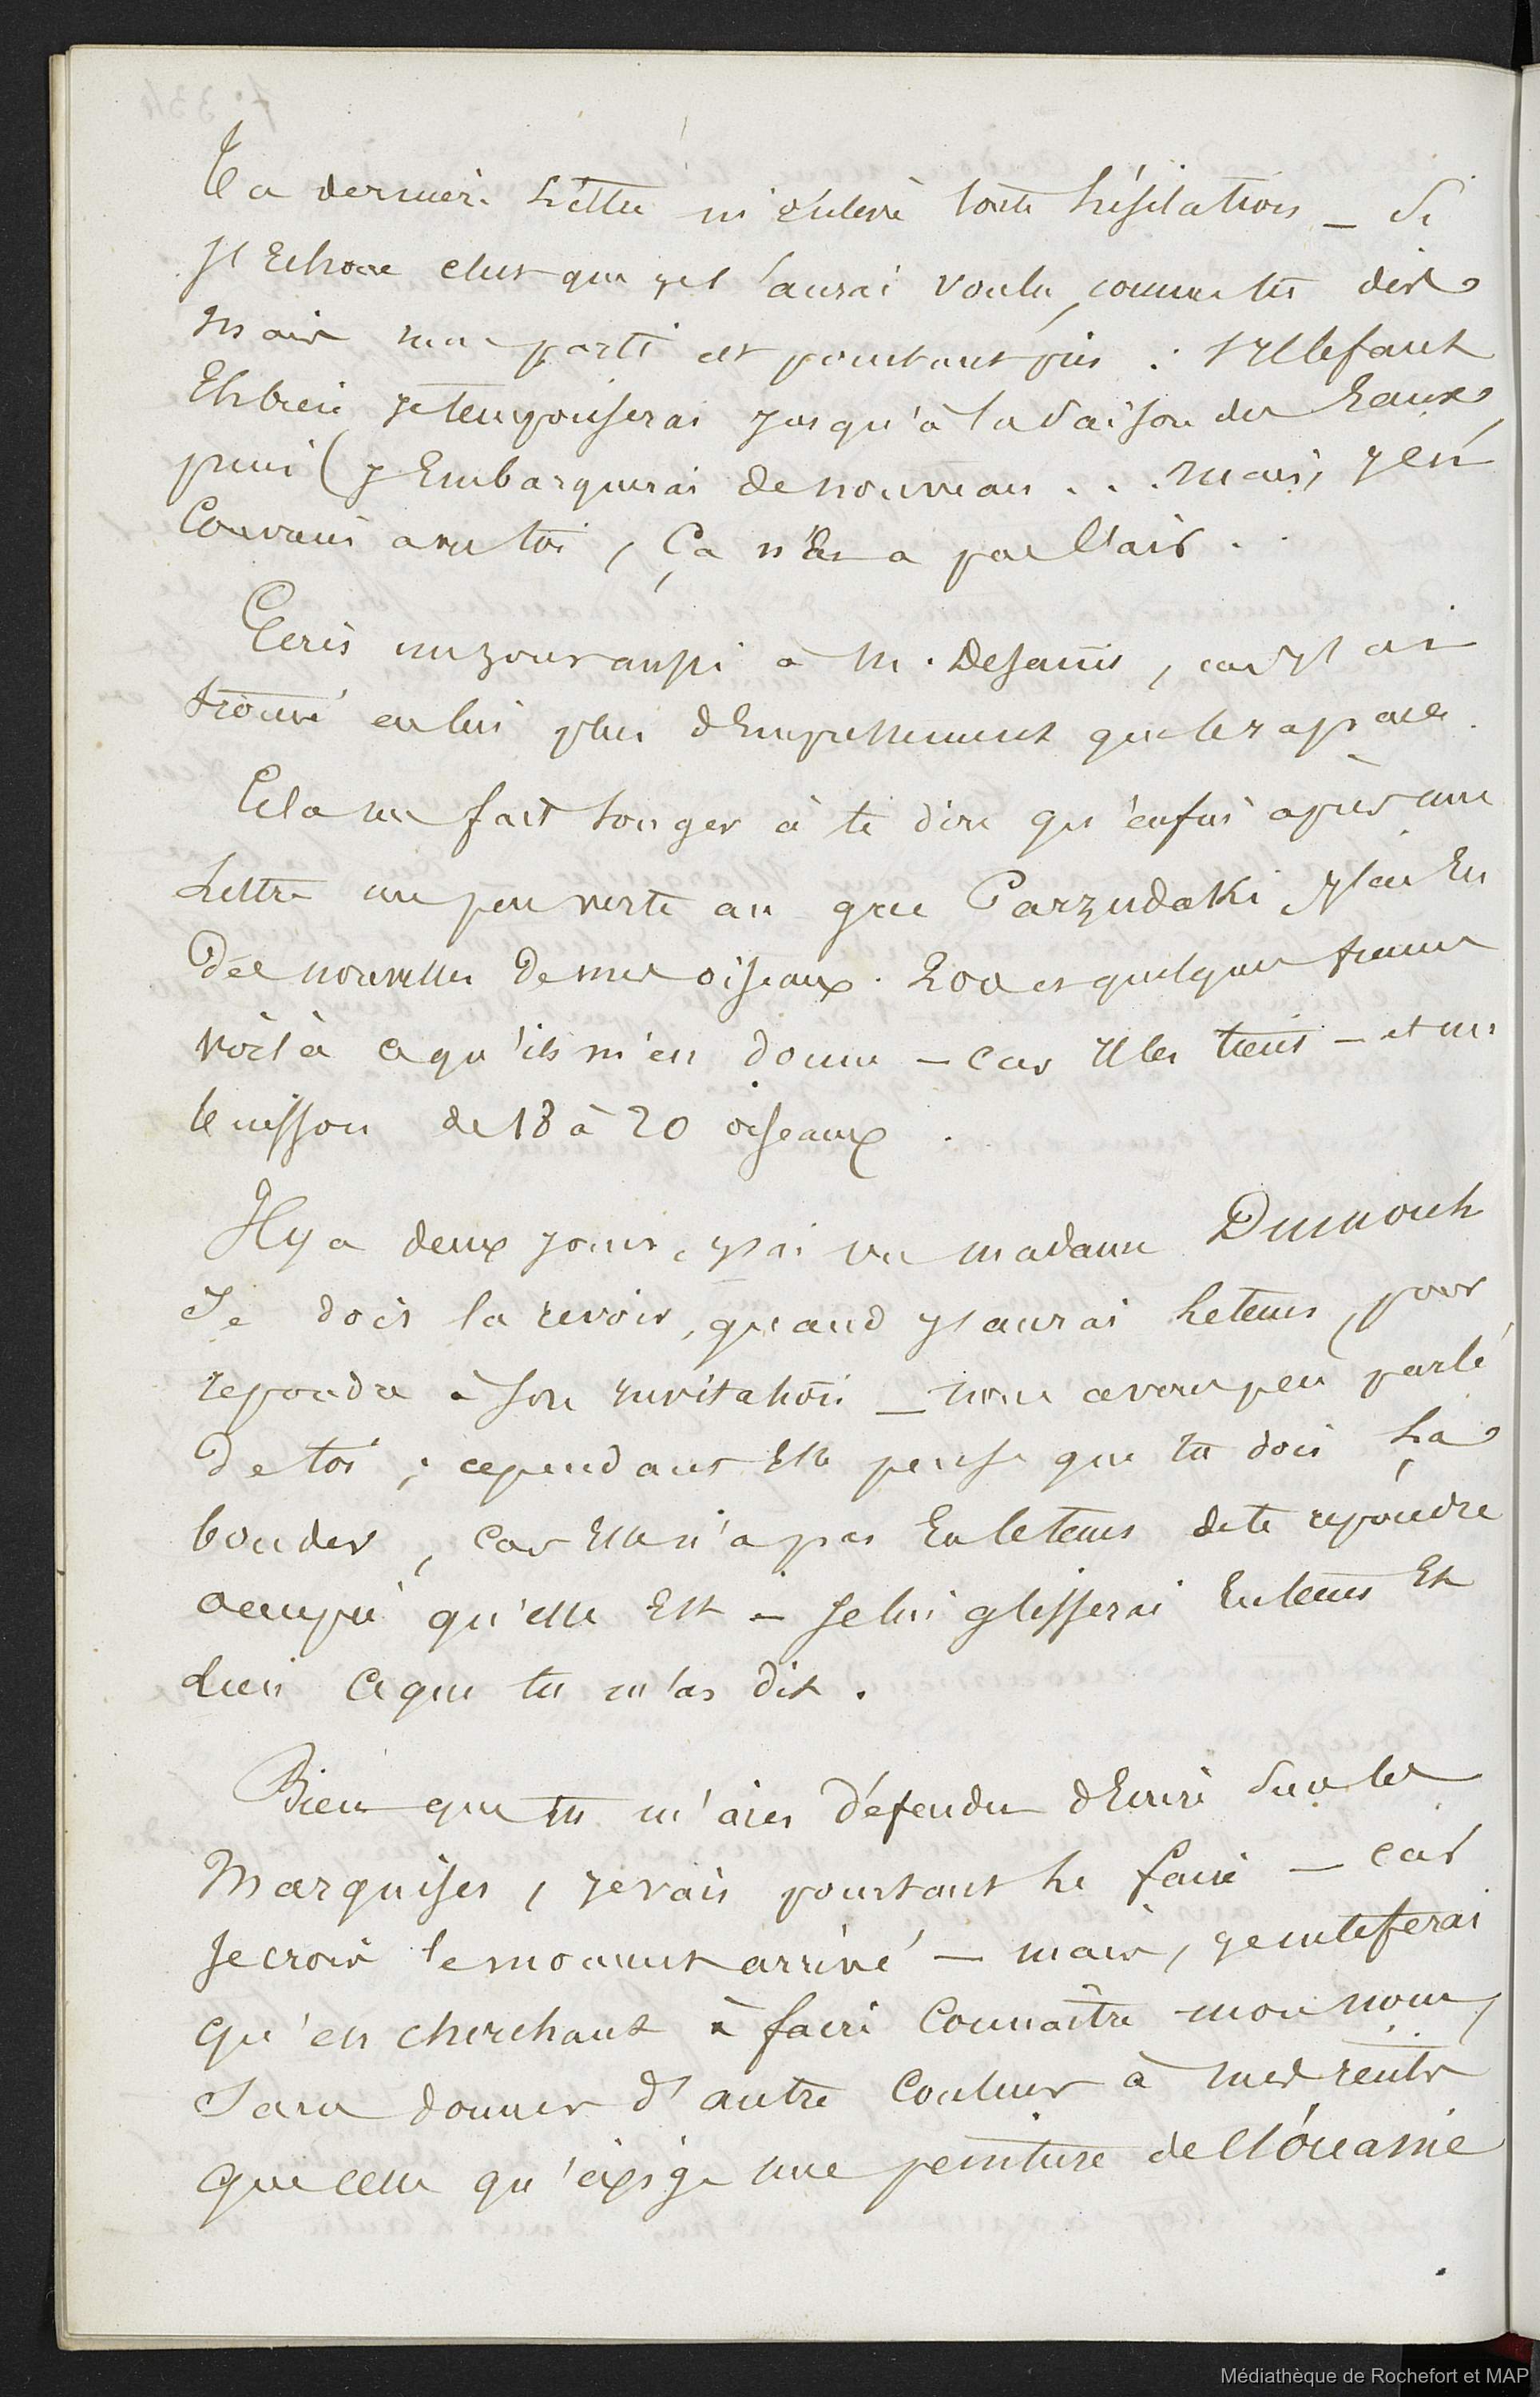 Ta dernière lettre m'enlève toute hésitation _ Si
J'Echoue c'est que je l'aurai voulu, comme tu dis
Mais mon parti est pourtant pris : s'Il le faut
Eh bien je temporiserai jusqu'à la saison des Eaux,
puis j'Embarquerai de nouveau . . . mais, j'en
Conviens avec toi, Ça n'En a pas l'air .
Ecris un jour aussi à M. Desanis, car j'ai
trouvé en lui plus d'Empressement que
Cela me fait songer à te dire qu'enfin après une
Lettre un peu verte au grec Parzudaki J'ai Eu
Des nouvelles De mes oiseaux. 200 et quelques francs
voilà ce qu'ils m'en donne – car Il les tient – et un
buisson de 18 à 20 oiseaux .
Il y a deux jours, j'ai vu madame Dumouch
Je dois la revoir, quand j'aurai le tems, pour
repondre à son invitation _ nous avons peu parlé
De toi ; cependant Elle pense que tu dois La
bouder, car Elle n'a pas Eu le tems de te repondre
occupée qu'elle Est – Je lui glisserai En tems Et
Lieu Ce que tu m'as dit .
Bien que tu m'aies défendu d'Ecrire Sur les
Marquises, je vais pourtant Le faire — car
Je crois le moment arrivé — mais, je ne le ferai
qu'en cherchant à faire Connaître mon nom,
Sans donner d'autre Couleur à mes recits
que celle qu'exige une peinture de l'Océanie
Médiathèque de Rochefort et MAP